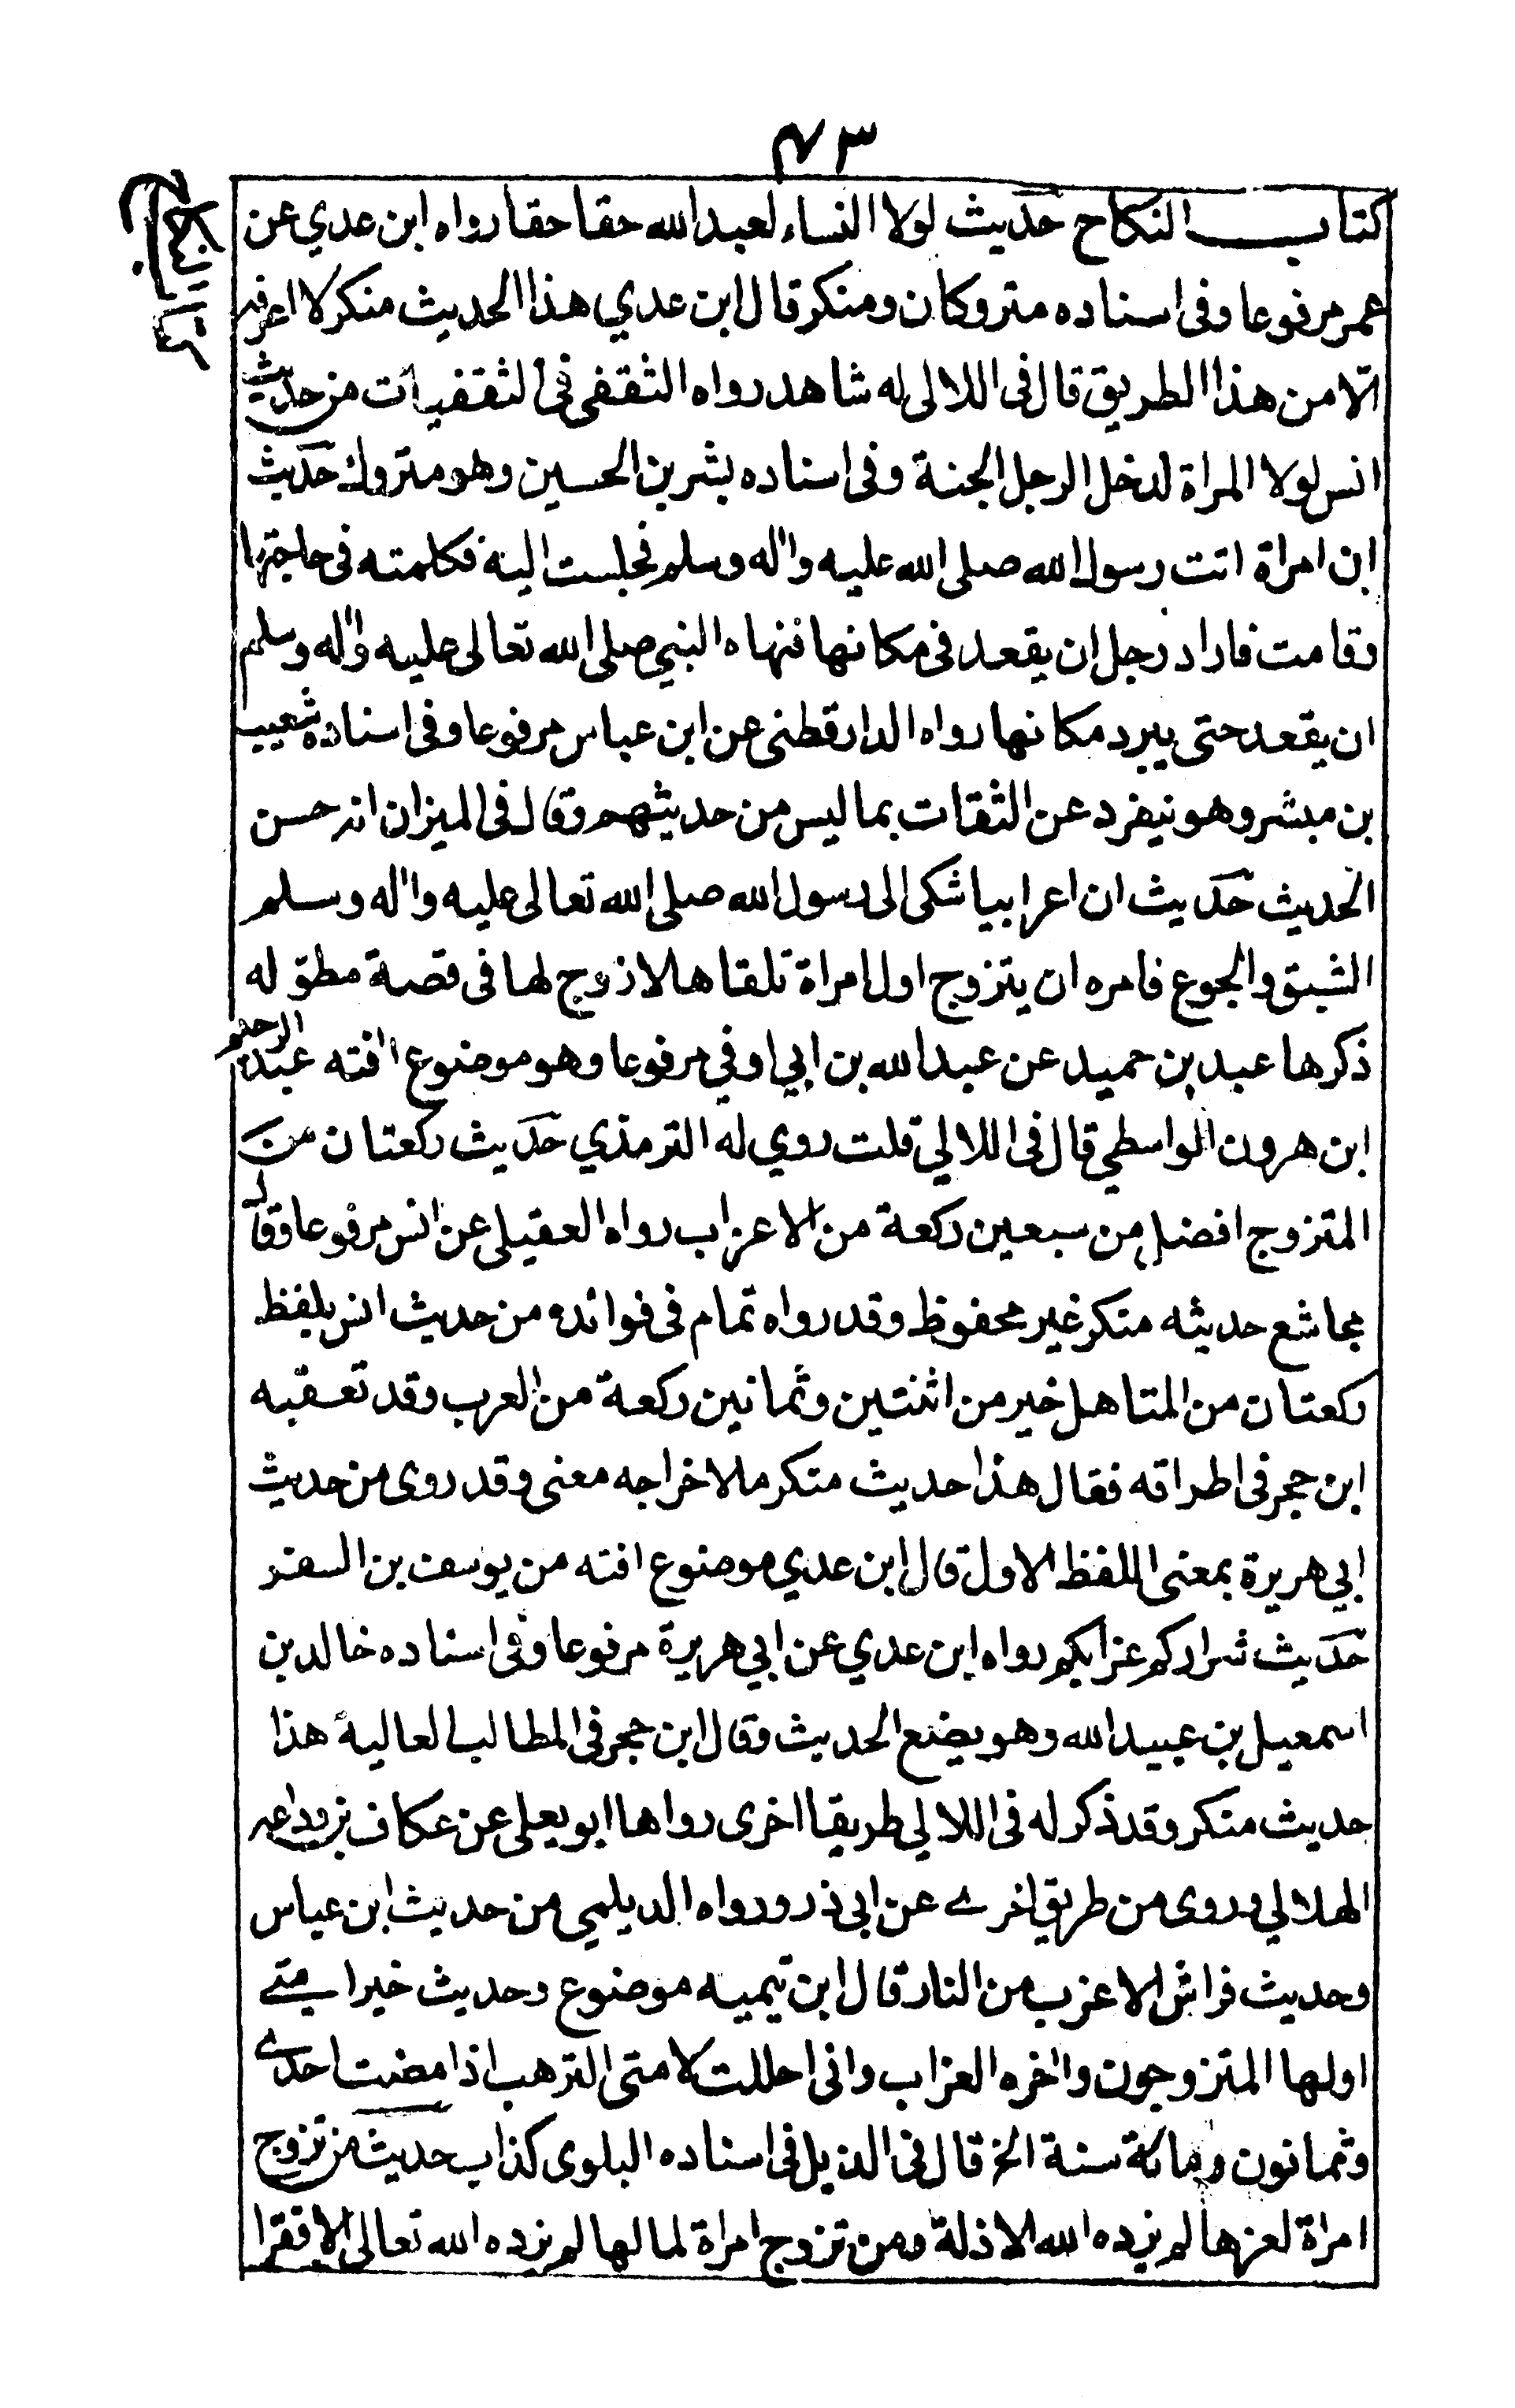 ٤٣
كتاب النكاح حديث لولا النساء لعبد الله حقا حقا رواه ابن عدي عن
عمر مرفوعا وفى اسناده متروكان ومنكر قال ابن عدي هذا الحديث منكر لا اعرفه
الا من هذا الطريق قال فى اللالى له شاهد رواه الثقفى فى الثقفيات من حديث
انس لولا المراة لدخل الرجل الجنة وفى اسناده بشر بن الحسين وهو متروك حديث
ان امراة اتت رسول الله صلى الله عليه واله وسلم فجلست اليه فكلمته فى حاجتها
وقامت فاراد رجل ان يقعد فى مكانها فنهاه النبي صلى الله تعالى عليه واله وسلم
ان يقعد حتى يبرد مكانها رواه الدارقطنى عن ابن عباس مرفوعا وفى اسناده شعيب
بن مبشر وهو ينفرد عن الثقات بما ليس من حديثهم وقال فى الميزان انه حسن
الحديث حديث ان اعرابيا شكى الى رسول الله صلى الله تعالى عليه واله وسلم
الشبق والجوع فامره ان يتزوج اول امراة تلقاها لا زوج لها فى قصة مطوله
ذكرها عبد بن حميد عن عبد الله بن ابي اوفي مرفوعا وهو موضوع افته عبد الرحيم
ابن هرون الواسطي قال فى اللالي قلت روي له الترمذي حديث ركعتان من
المتزوج افضل من سبعين ركعة من الاعزاب رواه العقيلى عن انس مرفوعا وقال
مجاشع حديثه منكر غير محفوظ وقد رواه تمام فى فوائده من حديث انس بلفظ
ركعتان من المتاهل خير من اثنتين وثمانين ركعة من العزب وقد تعقبه
ابن حجر فى اطرافه فقال هذا حديث منكر ما لاخراجه معنى وقد روى من حديث
ابي هريرة بمعنى اللفظ الاول قال ابن عدي موضوع افته من يوسف بن السفر
حديث شراركم عزابكم رواه ابن عدي عن ابي هريرة مرفوعا وفى اسناده خالد بن
اسمعيل بن عبيد الله وهو يضع الحديث وقال ابن حجر فى المطالب العالية هذا
حديث منكر وقد ذكر له فى اللالي طريقا اخرى رواها ابو يعلى عن عكاف بن وداعه
الهلالي وروى من طريق اخرى عن ابى ذر ورواه الديلمي من حديث ابن عباس
وحديث فراش الاعزب من النار قال ابن تيميه موضوع وحديث خير امتي
اولها المتزوجون واخره العزاب وانى احللت لامتى الترهب اذا مضت احدى
وثمانون ومائة سنة الخ قال فى الذيل فى اسناده البلوى كذاب حديث من تزوج
امراة لعزها لم يزده الله الا ذلة ومن تزوج امراة لمالها لم يزده الله تعالى الا فقرا